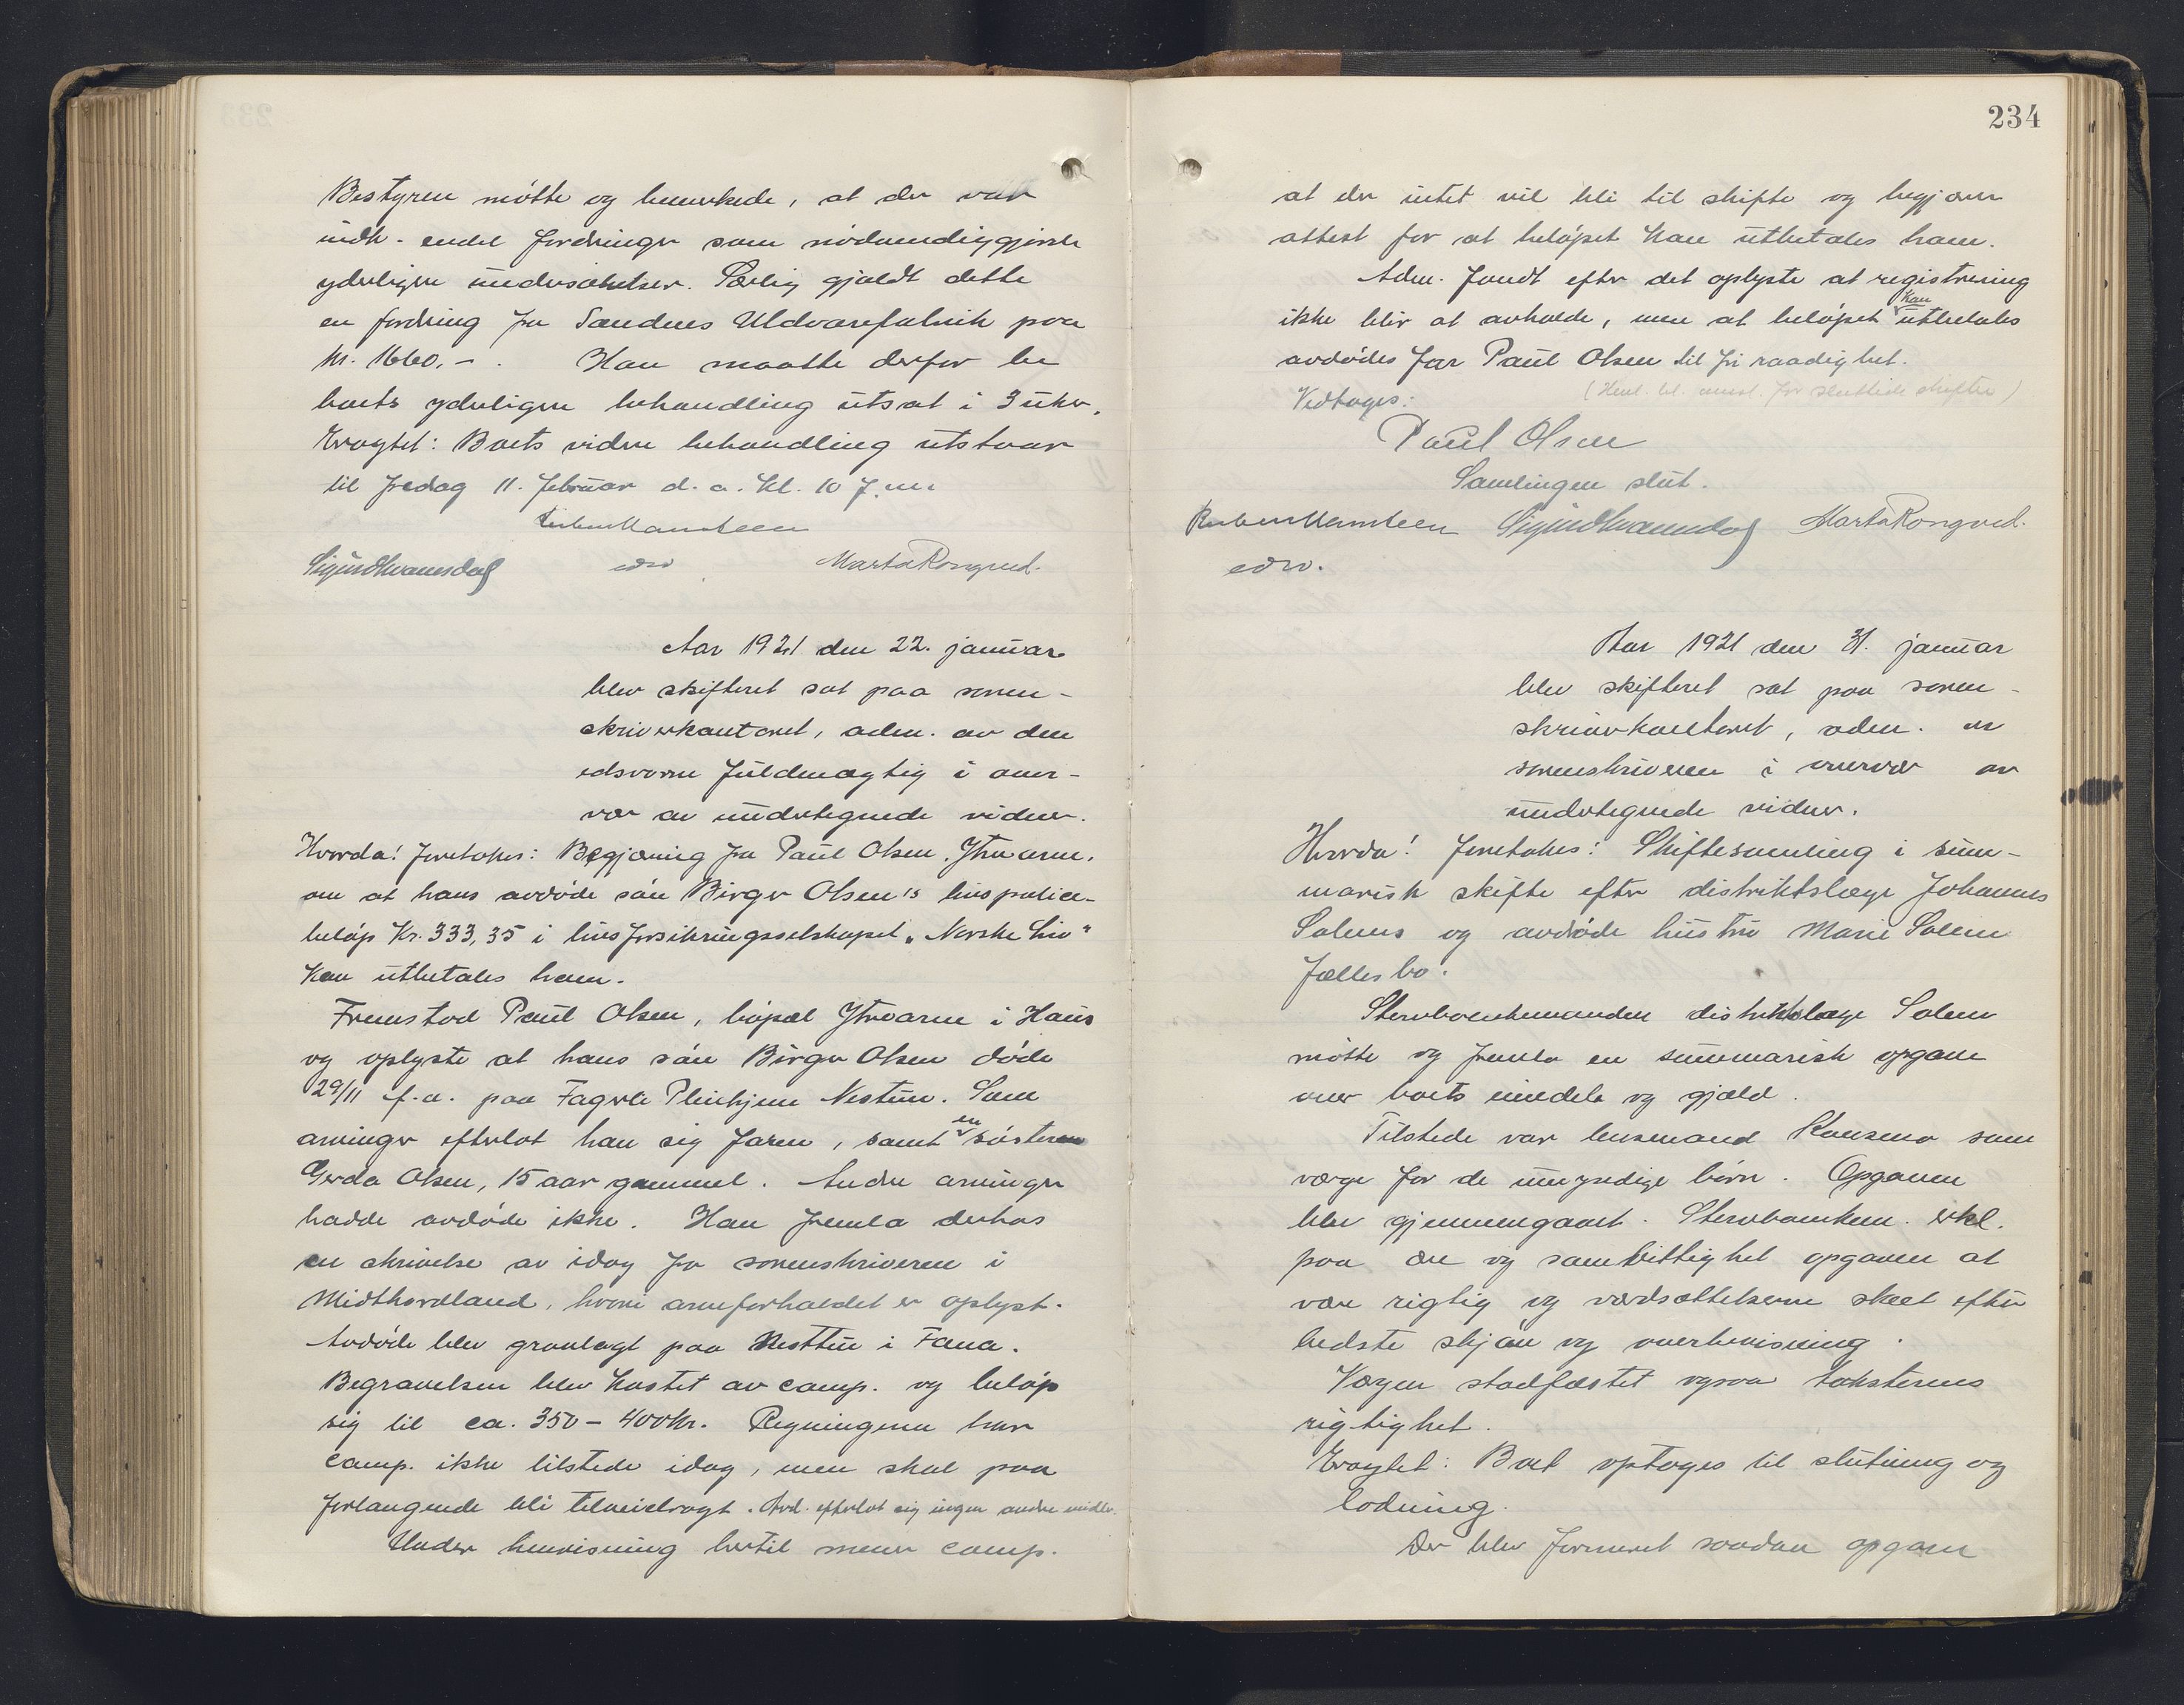 Bestyren møtte og bemerkede, at der var
indk. endel fordringer som nødvendiggjorde
yderligere undersøkelser. Særlig gjaldt dette
en fordring fra Sandnes Uldvarefabrik paa
kr. 1660.- . Han maatte derfor be
boets yderligere behandling utsat i 3 uker.
Eragtet: Boets videre behandling utstaar
til fredag 11. februar d. a. kl. 10 f.m.
edsv
Sigurd Svanesdal Marta Rongved.
Aar 1921 den 22. januar
blev skifteret sat paa soren-
skriverkontoret, adm. av den
edsvorne fuldmægtig i over-
vær av undertegnede vidner.
Hvorda! foretokes: Begjæring fra Paul Olsen, Ytrearne,
om at hans avdøde søn Birger Olsen's livspolice-
beløp Kr. 333,35 i livsforsikringsselskapet „Norske Liv"
kan utbetales ham.
Fremstod Paul Olsen, bopæl Ytrearne i Haus
og oplyste at hans søn Birger Olsen døde
29/11 f.a. paa Fagerli Pleiehjem Nestun. Som
arvinger efterlot han sig faren, samt en søster
Gerda Olsen, 15 aar gammel. Andre arvinger
hadde avdøde ikke. Han fremla derhos
en skrivelse av idag fra sorenskriveren i
Midthordland, hvori arveforholdet er oplyst.
Avdøde blev gravlagt paa Nesttun i Fana.
Begravelsen blev kostet av comp. og beløp
sig til ca. 350 - 400 kr. Regningerne har
comp. ikke tilstede idag, men skal paa
forlangende bli tilveiebragt. Avd. efterlot sig ingen andre midler.
Under henvisning hertil mener comp.
234
at der intet vil bli til skifte og begjærer
attest for at beløpet kan utbetales ham.
Adm. fandt efter det oplyste at registrering
ikke blir at avholde, men at beløpet kan utbetales
avdødes far Paul Olsen til fri raadighet.
Vedtages: (Henl. bl. for sluttede skifter)
Paul Olsen
Samlingen slut.
Sigurd Svanesdal Marta Rongved.
edsv.
Aar 1921 den 31. januar
blev skifteret sat paa soren-
skriverkontoret, adm. av
sorenskriveren i overvær av
undertegnede vidner.
Hvorda! foretokes: Skiftesamling i sum-
marisk skifte efter distriktslæge Johannes
Solems og avdøde hustru Marie Solem
fællesbo.
Stervboenkemanden distriktslæge Solem
møtte og fremla en summarisk opgave
over boets eiendele og gjæld.
Tilstede var lensmand som
verge for de umyndige børn. Opgaven
blev gjennemgaaet. Stervboenkem. erkl.
paa ære og samvittighet opgaven at
være rigtig og værdsættelserne skeet efter
bedste skjøn og overbevisning.
Vergen stadfæstet ogsaa taksternes
rigtighet.
Eragtet: Boet optages til slutning og
lodning.
Der blev formeret saadan opgave